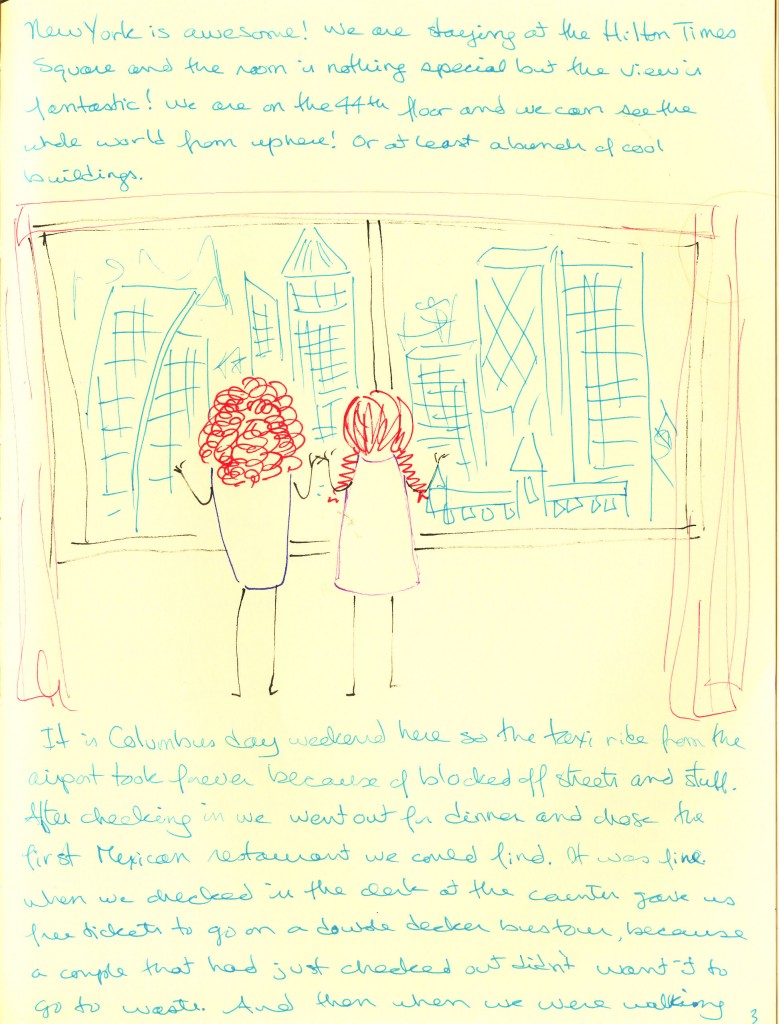 New York is awesome! We are staying at the Hilton Times
Square and the room is nothing special but the view is
fantastic! We are on the 44th floor and we can see the
whole world from up here! Or at least a bunch of cool
buildings.
It is Columbus day weekend here so the taxi ride from the
airport took forever because of blocked off streets and stuff.
After checking in we went out for dinner and chose the
first Mexican restaurant we could find. It was fine.
When we checked in the clerk at the counter gave us
free tickets to go on a double decker bus tour, because
a couple that had just checked out didn't want it to
go to waste. And then when we were walking
3